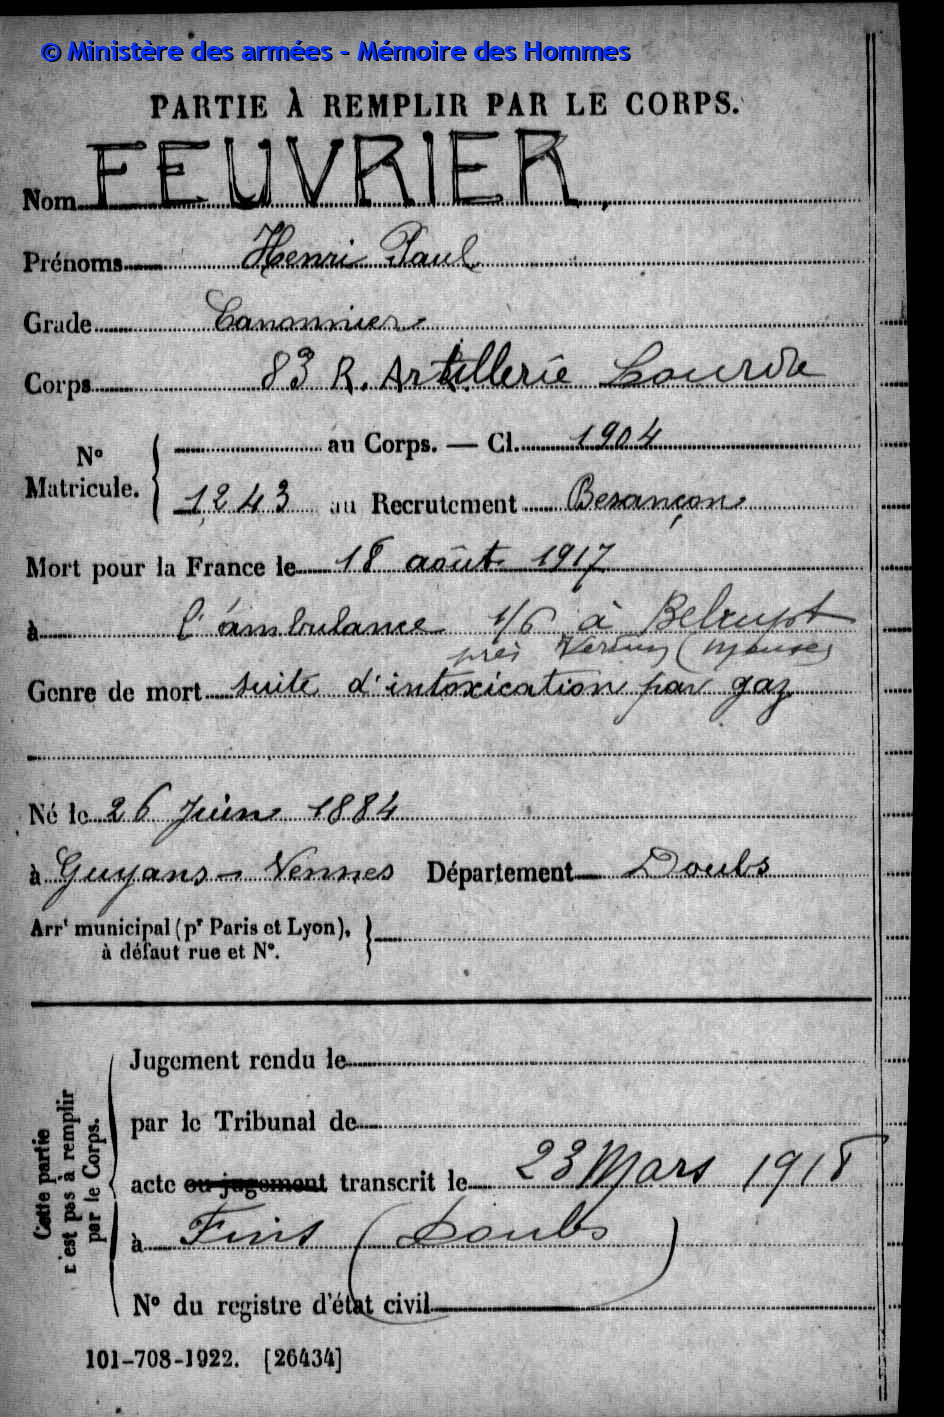 © Ministère des armées - Mémoire des Hommes
PARTIE À REMPLIR PAR LE CORPS.
Nom FEUVRIER.
Prénoms Henri Paul
Grade Canonnier
Corps 83 R. Artillerie Lourde
N° Matricule. { au Corps. — Cl. 1904
1243 au Recrutement Besançon
Mort pour la France le 18 août 1917
à l'ambulance 1/6 à Belrupt
près Verdun (Meuse)
Genre de mort suite d'intoxication par gaz
Né le 26 Juin 1884
à Guyans-Vennes Département Doubs
Arrt municipal (pr Paris et Lyon),
à défaut rue et N°.
Cette partie
n'est pas à remplir
par le Corps.
Jugement rendu le
par le Tribunal de
acte ou jugement transcrit le 23 Mars 1918
à Fins (Doubs)
N° du registre d'état civil
101-708-1922. [26434]